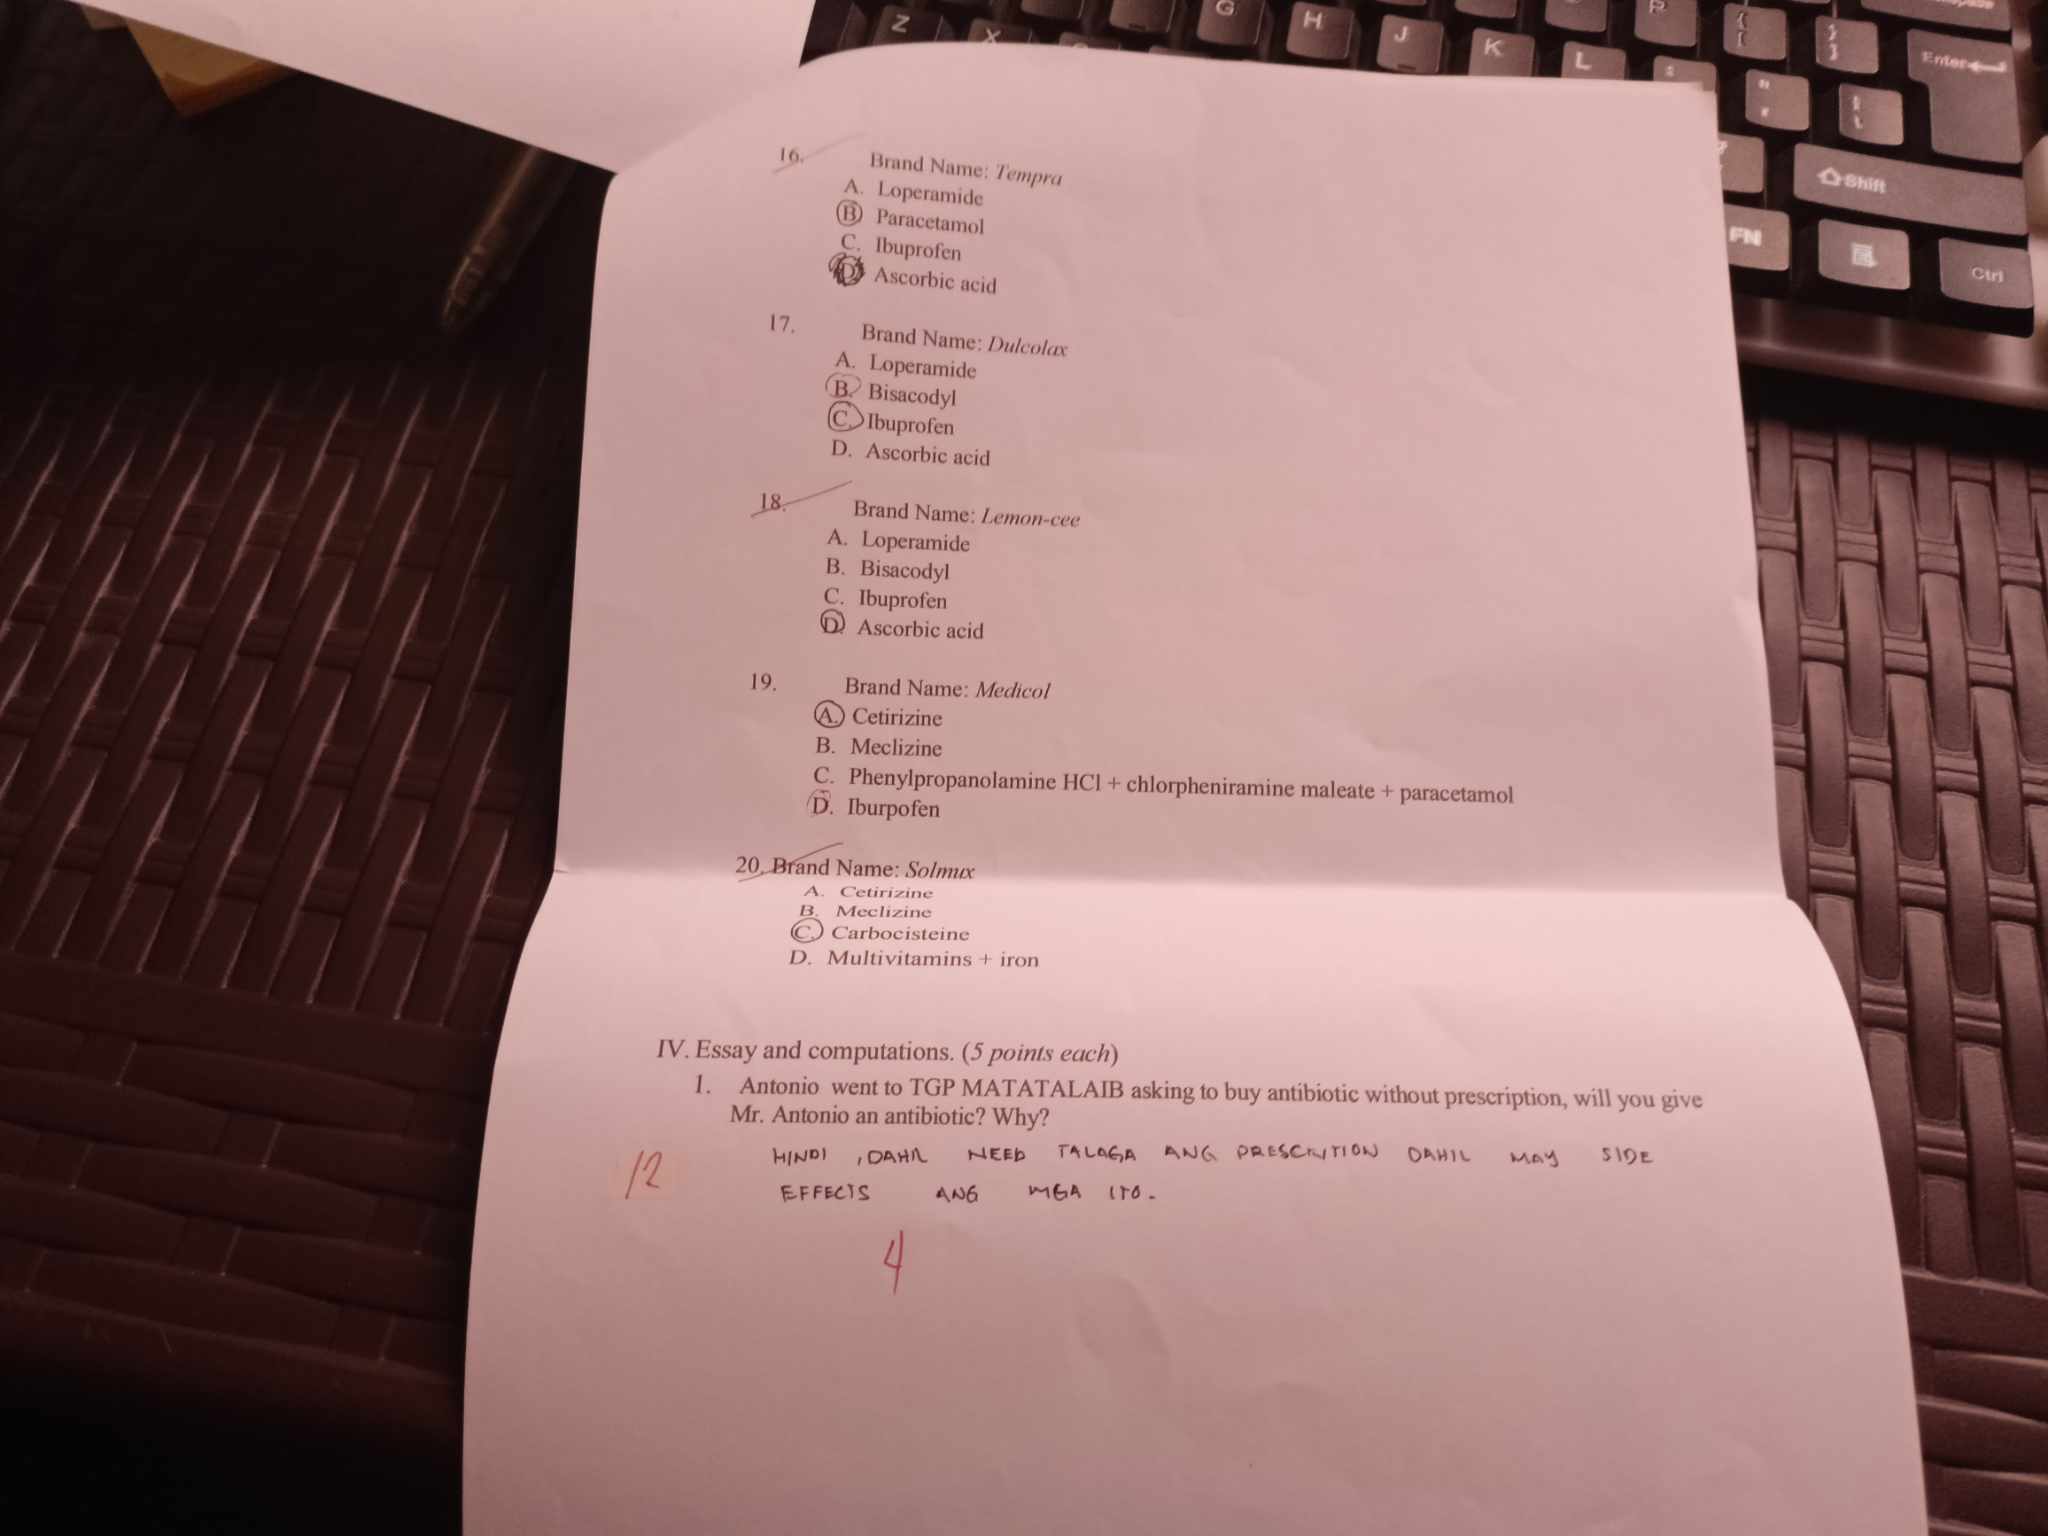 Z X G H J K L P
{ [
} ]
Enter
" '
Shift
FN
Ctrl
16. Brand Name: Tempra
A. Loperamide
B. Paracetamol
C. Ibuprofen
D. Ascorbic acid
17. Brand Name: Dulcolax
A. Loperamide
B. Bisacodyl
C. Ibuprofen
D. Ascorbic acid
18. Brand Name: Lemon-cee
A. Loperamide
B. Bisacodyl
C. Ibuprofen
D. Ascorbic acid
19. Brand Name: Medicol
A. Cetirizine
B. Meclizine
C. Phenylpropanolamine HCl + chlorpheniramine maleate + paracetamol
D. Iburpofen
20. Brand Name: Solmux
A. Cetirizine
B. Meclizine
C. Carbocisteine
D. Multivitamins + iron
IV. Essay and computations. (5 points each)
1. Antonio went to TGP MATATALAIB asking to buy antibiotic without prescription, will you give
Mr. Antonio an antibiotic? Why?
HINDI , DAHIL NEED TALAGA ANG PRESCRITION DAHIL MAY SIDE
12
EFFECTS ANG MGA ITO.
4